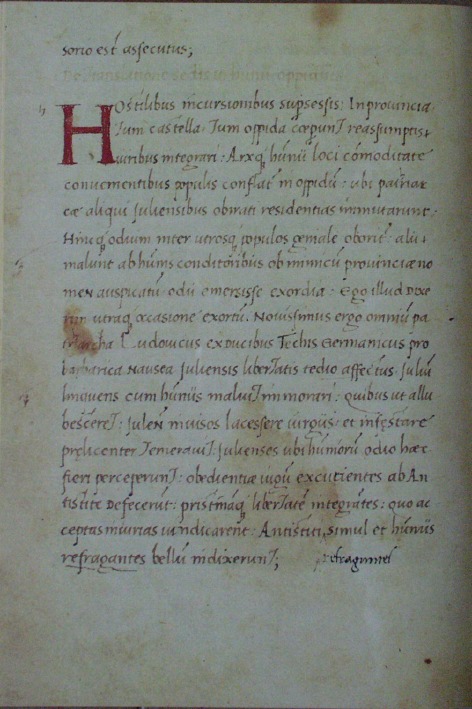 sorio est assecutus;
De translatione sedis
HOstilibus incursionibus supsessis: In provincia
Tum castella. Tum oppida cœpunt reassumptis
viribus integrari: Arxq hūnii loci cōmoditate
conuenientibus populis conflat in oppidū: ubi patriar
cæ aliqui Juliensibus obirati residentias innutarunt.
Hincq odium inter utrosq populos geniale oborit: alii
malunt ab hūnis conditoribus ob inimicū provinciæ no
men auspicatū odii emersisse exordia: Ego illud dixe
rim utraq occasione exortū. Novissimus ergo omniū pa
triarcha Ludovicus ex ducibus Techis Germanicus pro
barbarica nausea Juliensis libertatis tedio affectus: Juliū
linquens cum hūniis maluit immorari: quibus ut allu
besceret: Julen invisos lacessere virgiis: et infestare
prelicenter temeravit. Julienses ubi hūniorū odio hæc
fieri perceperunt: obedientiæ iugū excutientes ab An
tistite defecerunt: pristināq libertatē integrātes: quo ac
ceptas iniurias vindicarent: Antistiti, simul et hūniis
refragantes bellū indixerunt;